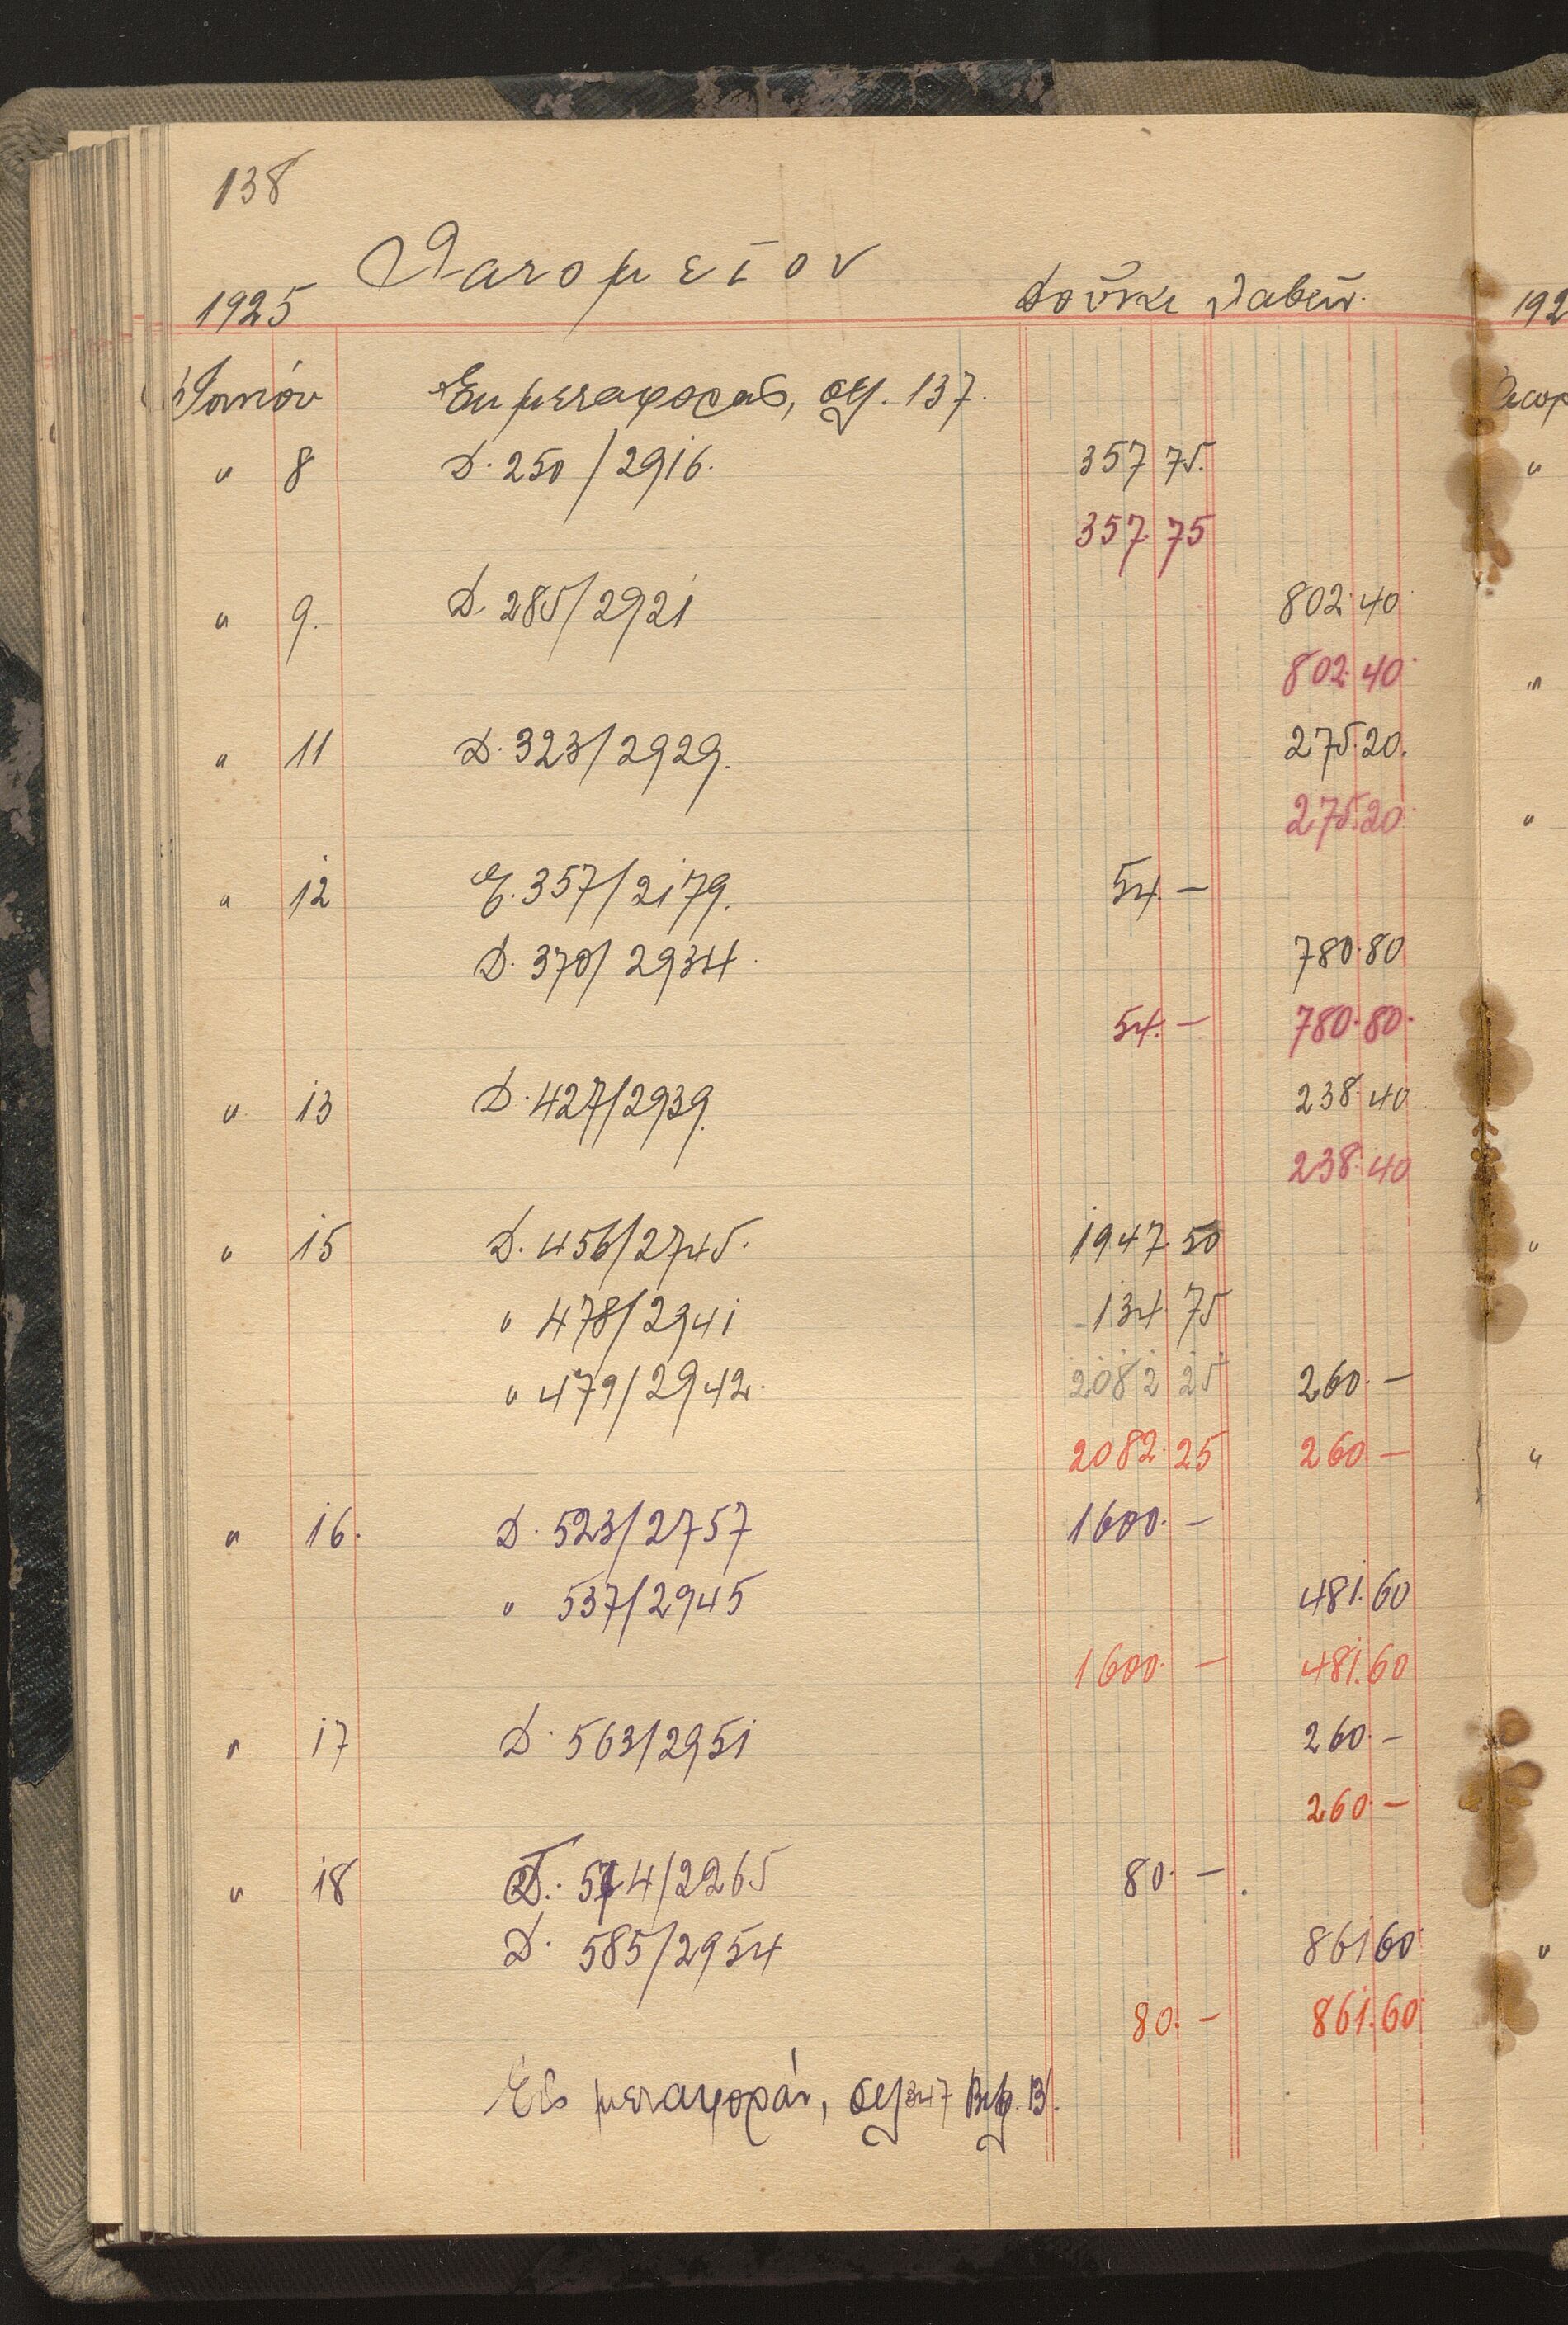 138
Λατομεῖον
1925 Δοῦναι Λαβεῖν.
Ἐκ μεταφορᾶς, σελ. 137.
" 8 Δ. 250/2916. 357 75.
357 75
" 9. Δ. 285/2921 802.40
802.40
" 11 Δ. 323/2929. 275.20.
275.20
" 12 Ε. 357/2179. 54.—
Δ. 370/2934. 780.80
54.— 780.80.
" 13 Δ. 427/2939. 238.40
238.40
" 15 Δ. 456/2745. 1947.50
" 478/2941 134.75
" 479/2942. 2082 25 260.—
2082.25 260 —
" 16. Δ. 523/2757 1600.—
" 537/2945 481.60
1600.— 481.60
" 17 Δ. 563/2951 260.—
260.—
" 18 574/2265 80.—
Δ. 585/2954 861 60
80.— 861.60
Εἰς μεταφοράν, σελ 347 Βιβ. Β.
192